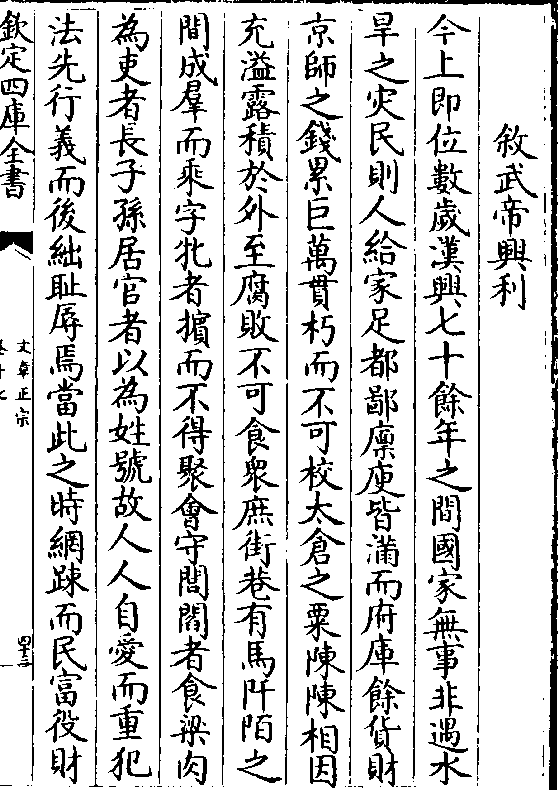 敘武帝興利
今上即位數歲漢興七十餘年之間國家無事非遇水
旱之灾民則人給家足都鄙廩庾皆滿而府庫餘貨財
京師之錢累巨萬貫朽而不可校太倉之粟陳陳相因
充溢露積於外至腐敗不可食衆庶街巷有馬阡陌之
間成羣而乘字牝者擯而不得聚會守閭閻者食梁肉
為吏者長子孫居官者以為姓號故人人自愛而重犯
法先行義而後絀耻辱焉當此之時網踈而民富役財
欽定四庫全書
文章正宗